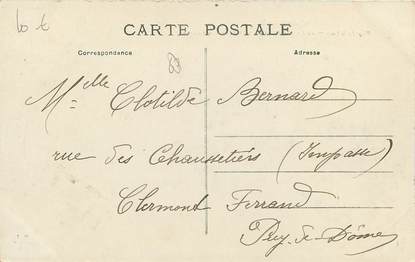 CARTE POSTALE
Correspondance
Adresse
Melle Clotilde Bernard
rue des Chaussetiers (Impasse)
Clermont Ferrand
Puy-de-Dôme